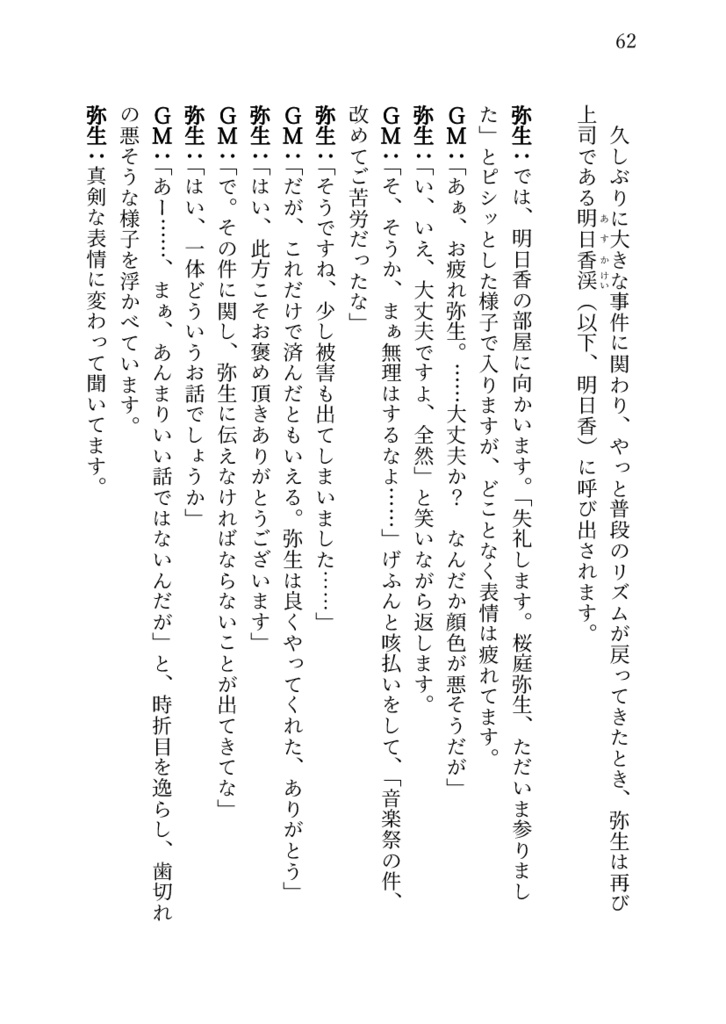 62
久しぶりに大きな事件に関わり、やっと普段のリズムが戻ってきたとき、弥生は再び
上司である明日香渓（以下、明日香）に呼び出されます。
あすかけい
弥生：では、明日香の部屋に向かいます。「失礼します。桜庭弥生、ただいま参りまし
た」とピシッとした様子で入りますが、どことなく表情は疲れてます。
GM：「あぁ、お疲れ弥生。……大丈夫か？　なんだか顔色が悪そうだが」
弥生：「い、いえ、大丈夫ですよ、全然」と笑いながら返します。
GM：「そ、そうか、まぁ無理はするなよ……」げふんと咳払いをして、「音楽祭の件、
改めてご苦労だったな」
弥生：「そうですね、少し被害も出てしまいました……」
GM：「だが、これだけで済んだともいえる。弥生は良くやってくれた、ありがとう」
弥生：「はい、此方こそお褒め頂きありがとうございます」
GM：「で。その件に関し、弥生に伝えなければならないことが出てきてな」
弥生：「はい、一体どういうお話でしょうか」
GM：「あー……、まぁ、あんまりいい話ではないんだが」と、時折目を逸らし、歯切れ
の悪そうな様子を浮かべています。
弥生：真剣な表情に変わって聞いてます。